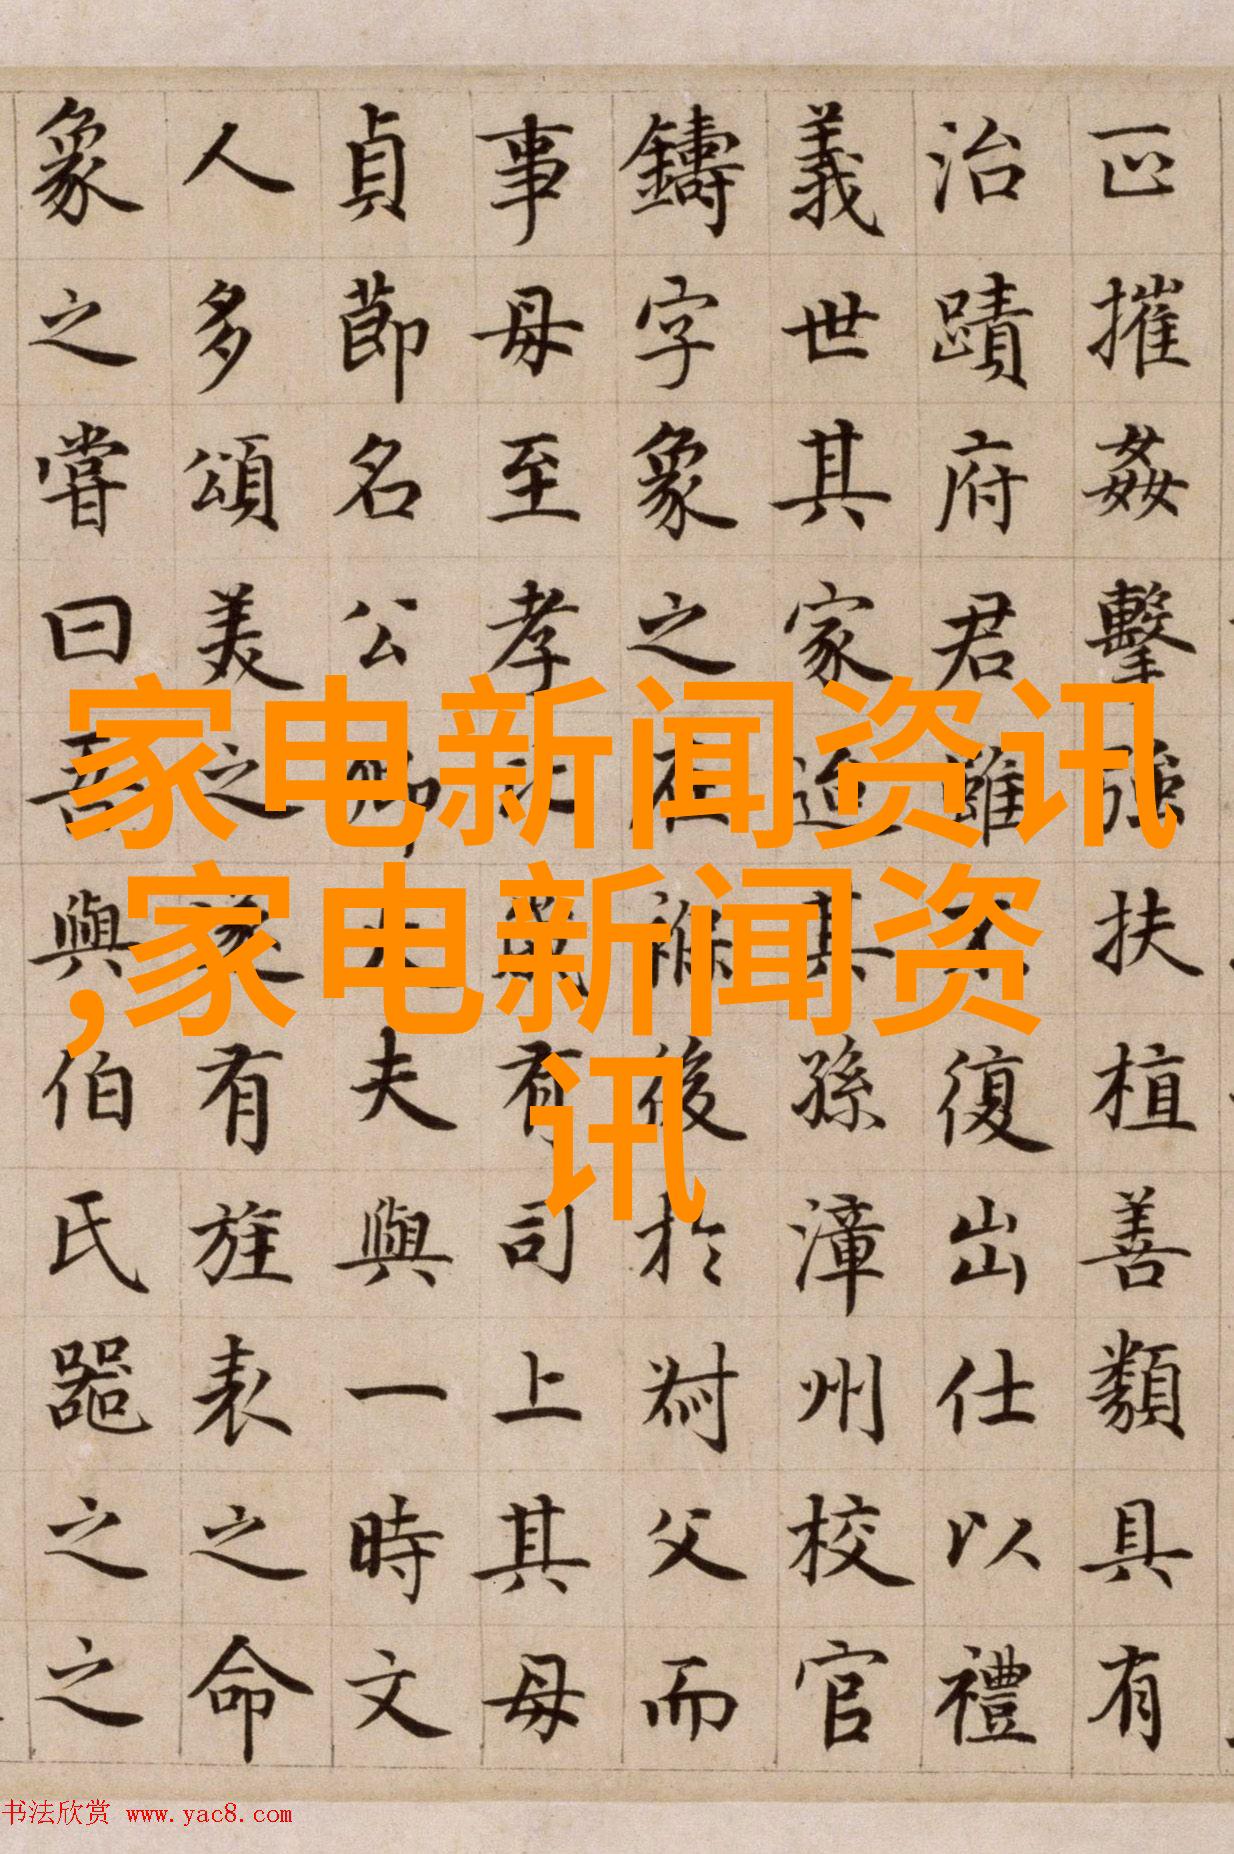 摧姦擊強扶植善類具有
治蹟府君雖不復出仕以禮
義世其家迨其孫漳州校官
鑄字象之後於父而
事母至孝有司上其母
貞節名公卿大夫與一時文
人多頌美之遂有旌表之命
象之嘗曰吾與伯氏器之之
家电新闻资讯
,家电新闻资
讯
书法欣赏 www.yac8.com